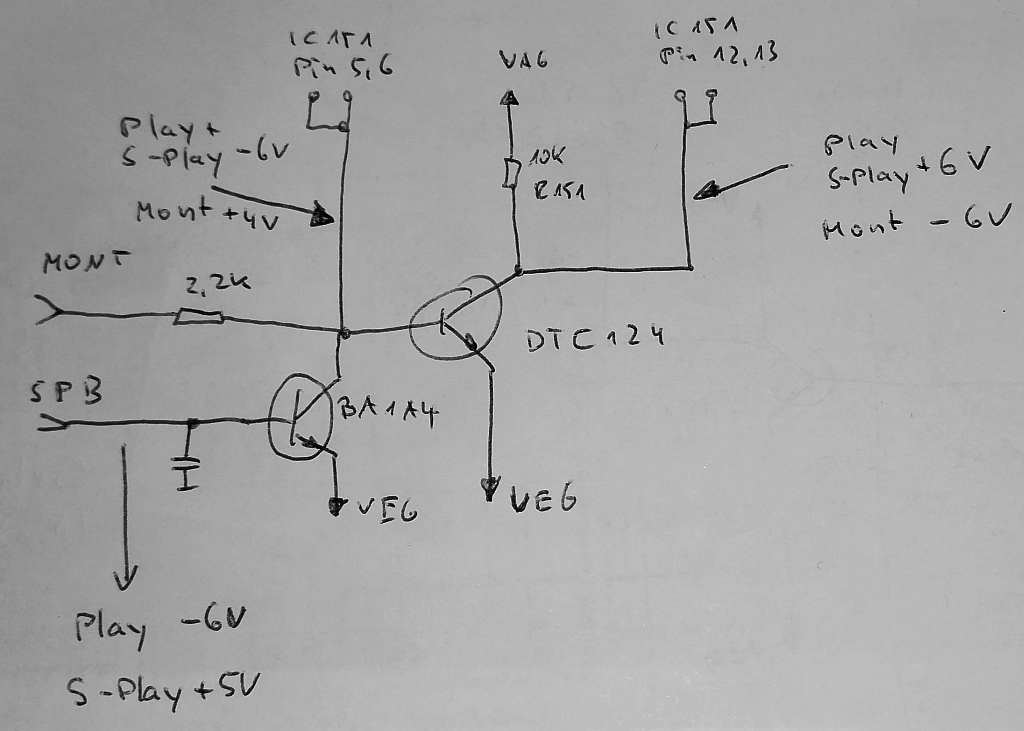 IC 151
Pin 5,6
VA6
IC 151
Pin 12,13
Play +
S-Play -6V
Mont +4V
10K
R151
Play
S-Play +6V
Mont -6V
MONT
2,2K
DTC124
SPB
BA1A4
VE6
VE6
Play -6V
S-Play +5V